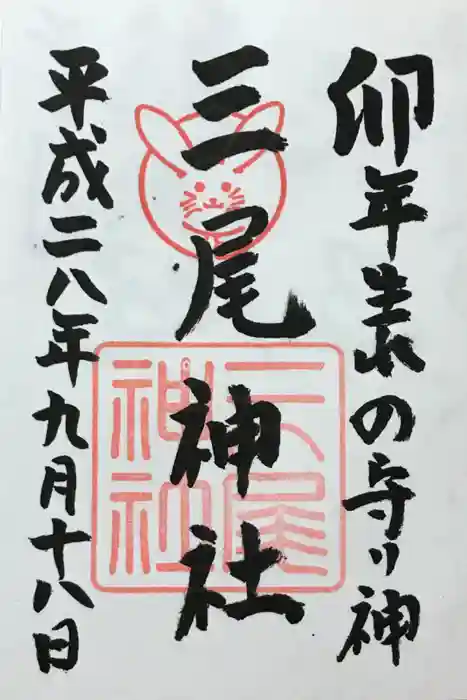 卯年生まれの守り神
三尾神社
平成二八年九月十八日
三尾
神社